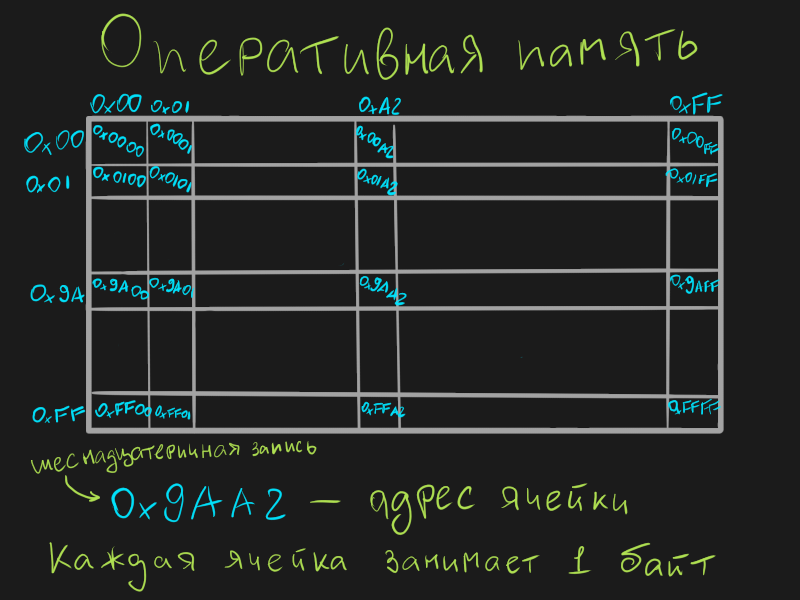 Оперативная память
0x00 0x01 0xA2 0xFF
0x00 0x0000 0x0001 0x00A2 0x00FF
0x01 0x0100 0x0101 0x01A2 0x01FF
0x9A 0x9A00 0x9A01 0x9AA2 0x9AFF
0xFF 0xFF00 0xFF01 0xFFA2 0xFFFF
шеснадцатеричная запись
0x9AA2 — адрес ячейки
Каждая ячейка занимает 1 байт